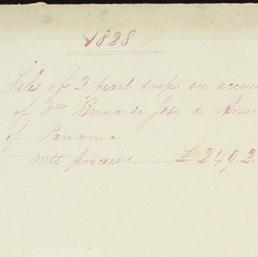 1828
Sales of 2 pearl drops on accou
of Don Bernardo José de
of Panama
nett proceeds £2492.